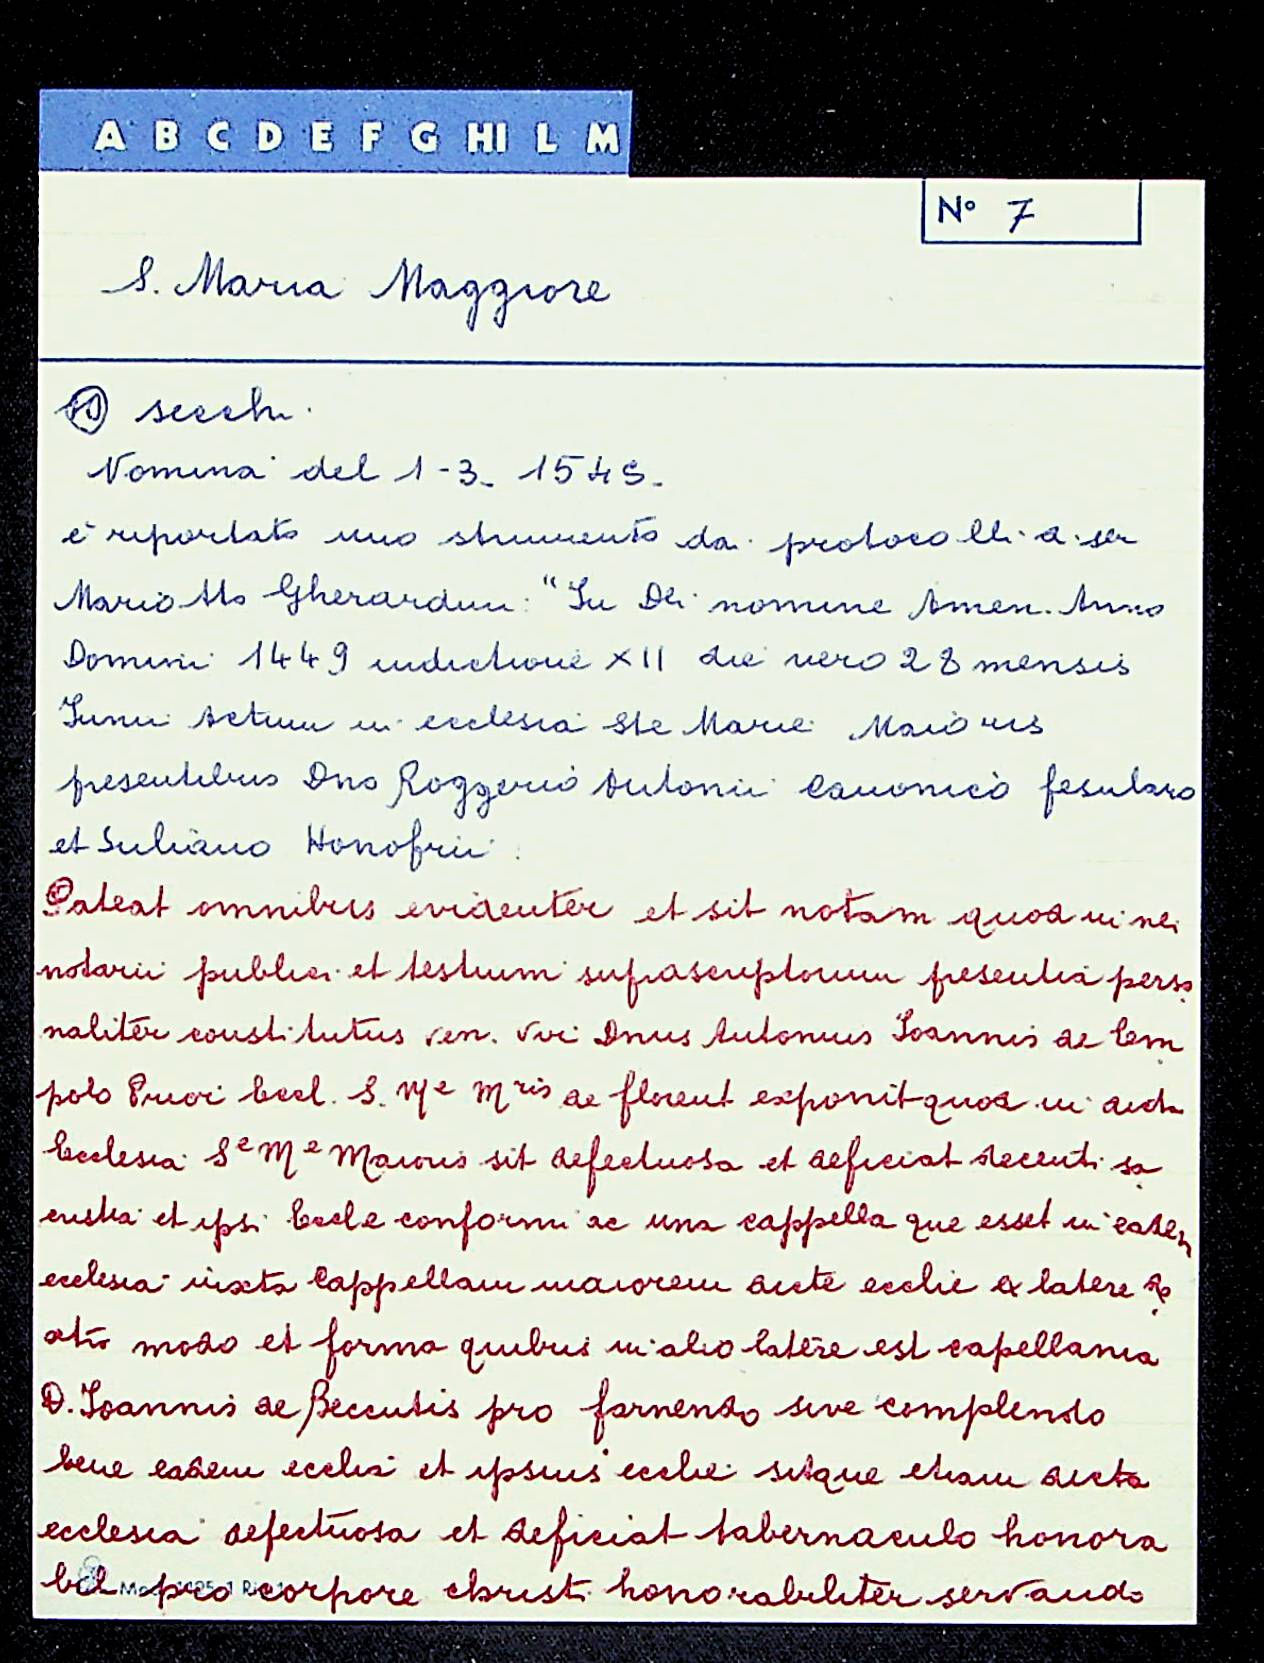 A B C D E F G HI L M
N° 7
S. Maria Maggiore
secchi.
Nomina del 1-3. 1549.
è riportato uno strumento dai protocolli di ser
Mariotto Gherardini: "In Dei nomine Amen. Anno
Domini 1449 indictione XII die vero 28 mensis
Iunii Actum in ecclesia Ste Marie Maioris
presentibus Dno Roggerio Antonii Canonico fesulano
et Iuliano Honofrii.
Pateat omnibus evidenter et sit notam quod in nei
notarii publici et testium suprascriptorum presentia perso
naliter constitutus ven. Viri Dnus Antonius Ioannis de
polo Priori Eccl. S. Me Mris de florent exponit quod in dicta
Ecclesia Se Me Maioris sit defectuosa et deficiat decenti sa
cristia et ipsi Eccle conformi ac una cappella que esset in eadem
ecclesia iuxta Cappellam maiorem dicte ecclie ex latere
modo et forma quibus in alio latere est capellania
D. Ioannis de Beccutis pro farnendo sive complendo
bene eadem ecclia et ipsius ecclie sitque etiam dicta
ecclesia defectuosa et deficiat tabernaculo honora
bili pro corpore christi honorabiliter servando